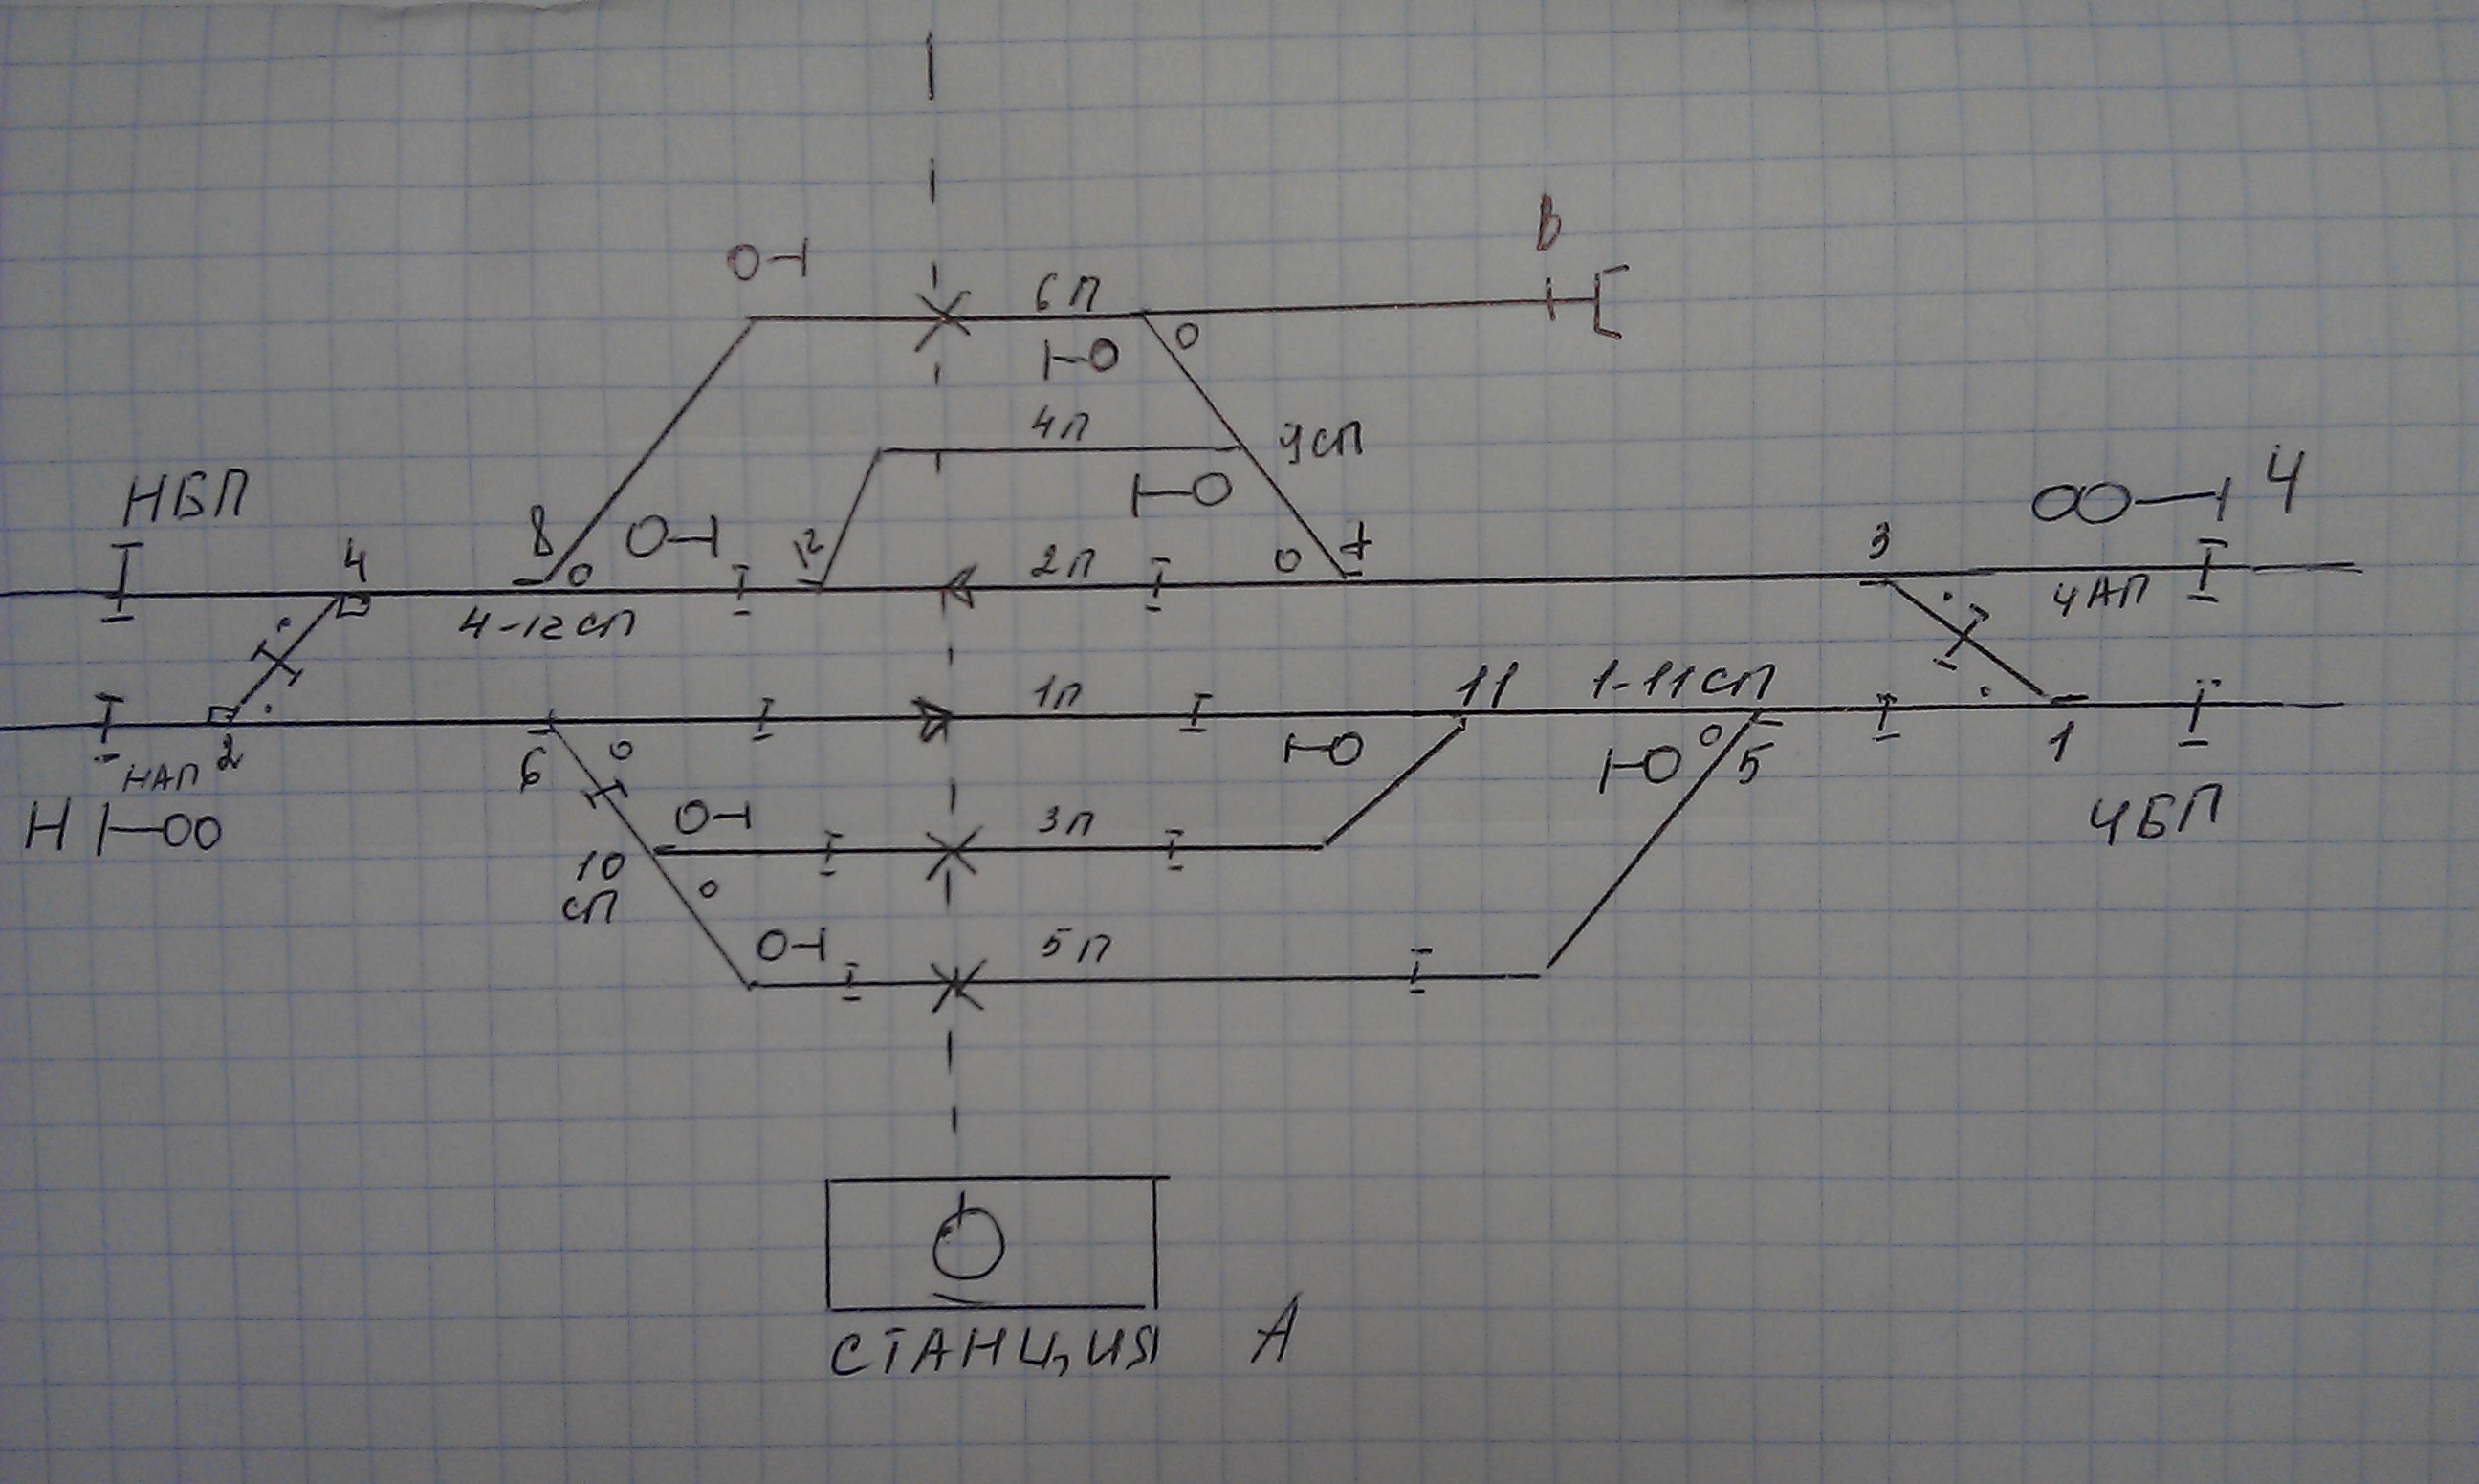 В
6П
4П
9СП
НБП
4
8
12
2П
7
3
Ч
4-12СП
ЧАП
1П
11
1-11СП
НАП
2
6
5
1
Н
3П
ЧБП
10
СП
5П
СТАНЦИЯ А